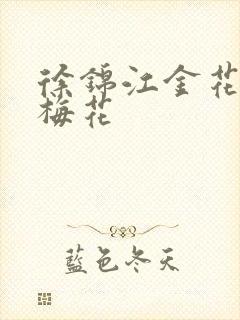 徐錦江金花
梅花
藍色冬天